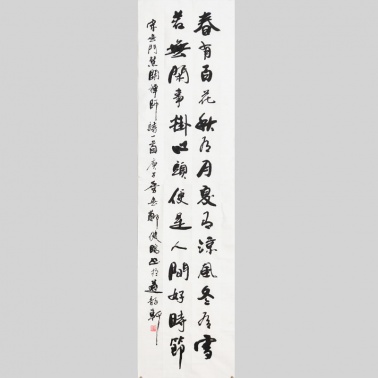 春有百花秋有月夏有凉風冬有雪
若無閑事掛口頭便是人間好時節
宋無門慧開禪師詩一首庚子